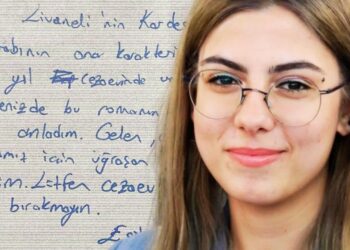 Livaneli'nin Kardeş
abının ana karakteri
yıl cezaevinde
enizde bu romanın
anladım. Gelen,
mız için uğraşan
im. Lütfen cezaev
bırakmayın.